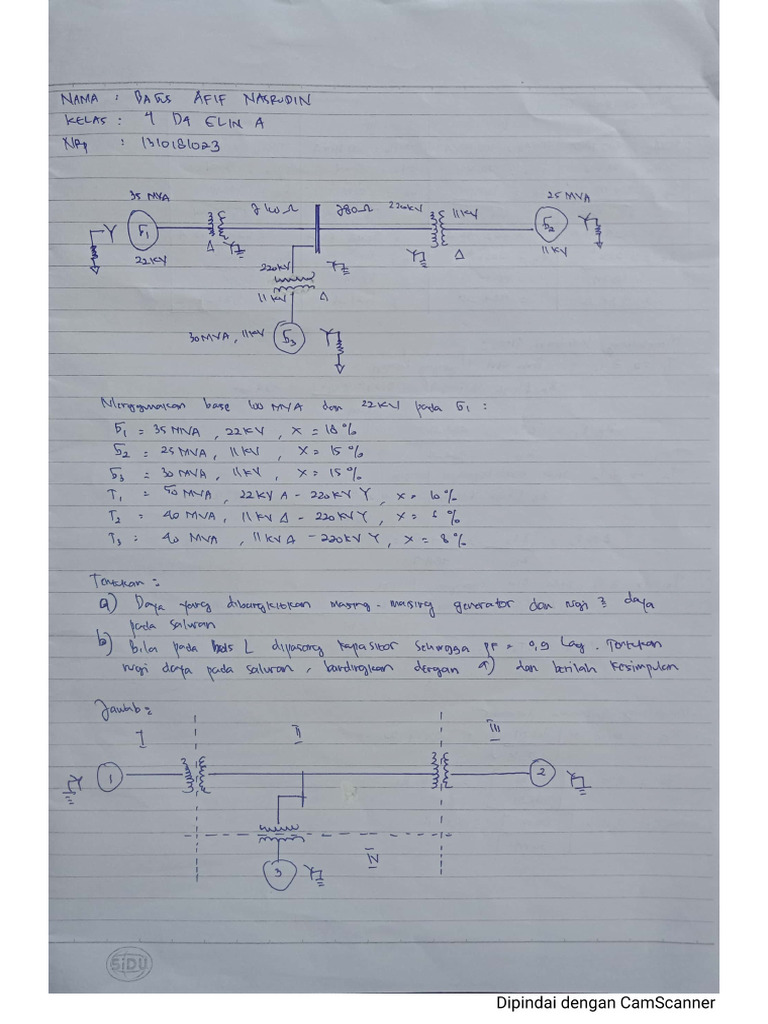 NAMA : BAGUS AFIF NASRUDIN
KELAS : 4 D4 ELIN A
NRP : 1310181023
35 MVA
25 MVA
j40Ω
j80Ω
220kV
11kV
G1
Y
Δ
Y
Y
Δ
G2
Y
22kV
11kV
220kV
Y
11kV
Δ
30MVA, 11kV
G3
Y
Menggunakan base 100 MVA dan 22KV pada G1 :
G1 = 35 MVA , 22 KV , X = 10 %
G2 = 25 MVA , 11 KV , X = 15 %
G3 = 30 MVA , 11 KV , X = 15 %
T1 = 50 MVA , 22KV Δ - 220KV Y , X = 10 %
T2 = 40 MVA , 11KV Δ - 220KV Y , X = %
T3 : 40 MVA , 11KV Δ - 220KV Y , X = 8 %
Tentukan :
a) Daya yang dibangkitkan masing - masing generator dan rugi 2 daya
pada saluran
b) Bila pada L dipasang kapasitor sehingga pf = 0,9 Lag . Tentukan
rugi daya pada saluran , bandingkan dengan a) dan berilah kesimpulan
Jawab :
I
II
III
1
Y
2
Y
IV
3
Y
SiDU
Dipindai dengan CamScanner